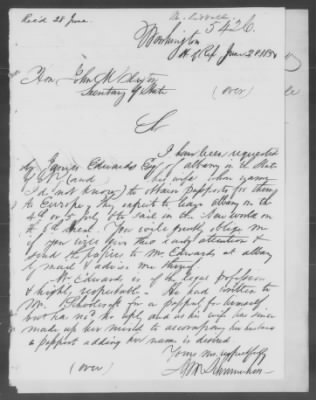 Recd 28 June.
5426
Washington
H. of Rep. June 28 185
Hon John M Clayton
Secretary of State
(over)
Sir
I have been requested
by James Edwards Esq of Albany in the State
of N. Y. and his wife whose name
I do not know) to obtain passports for them
to Europe, they expect to leave Albany on the
4th or 5 July & to sail in the New World on
the 6th. You will greatly oblige me
if you will give this early attention &
send the papers to Mr. Edwards at Albany
by mail & advise me thereof
Mr Edwards is of the legal profession
& highly respectable. He had written to
Mr. for a passport for himself
but has recd no reply and as his wife has since
made up her mind to accompany her husband
a passport adding her name is desired
Yours very respectfully
Schermerhorn
(over)